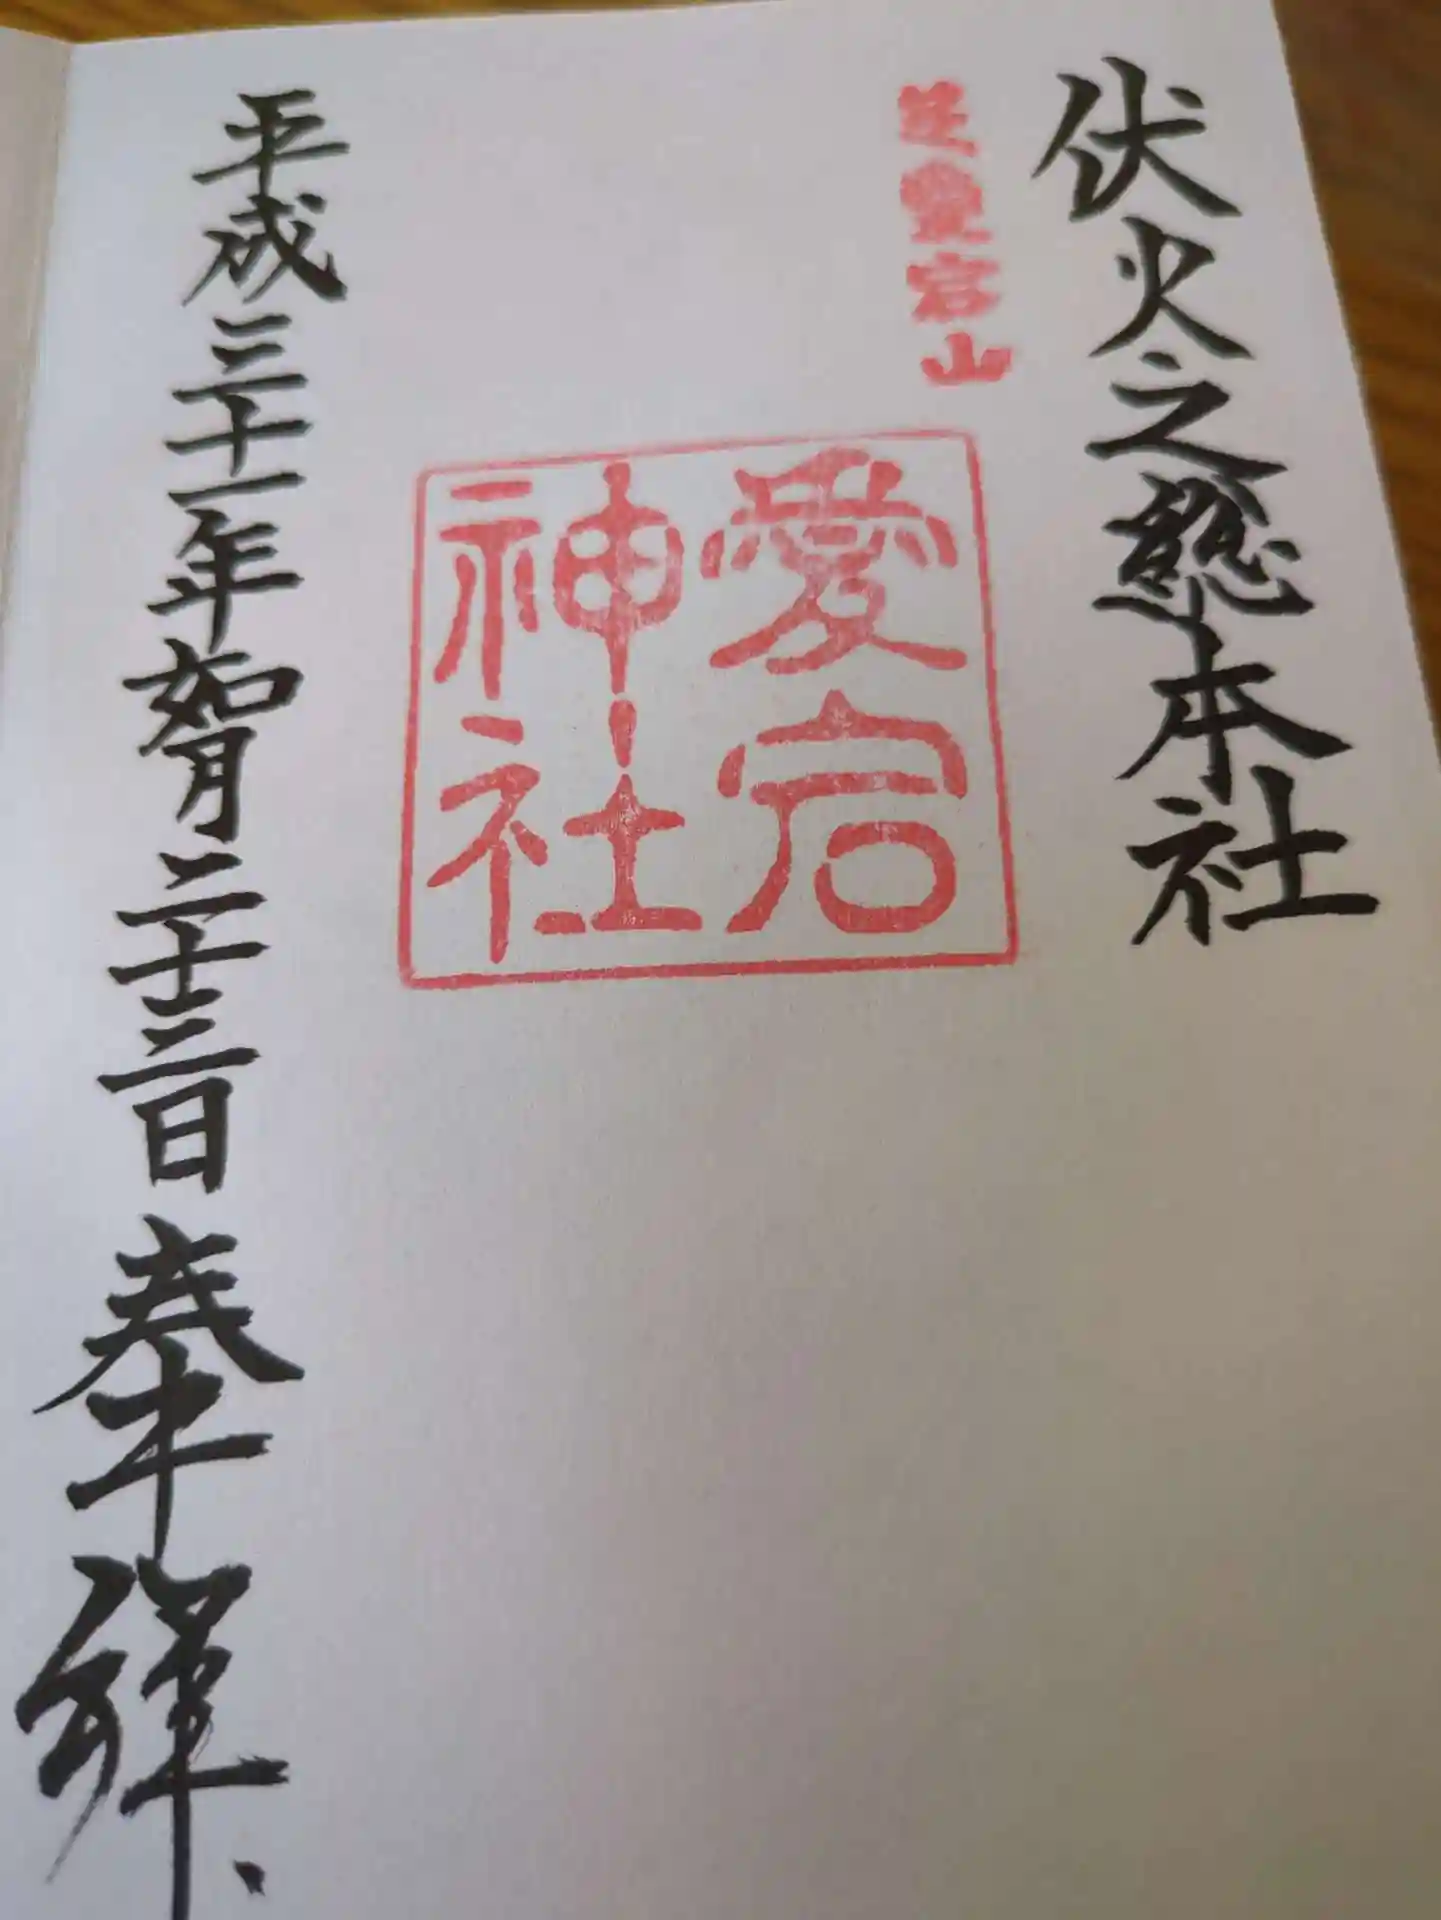 伏火之總本社
芝愛宕山
愛宕
神社
平成三十一年如月二十三日 奉拝